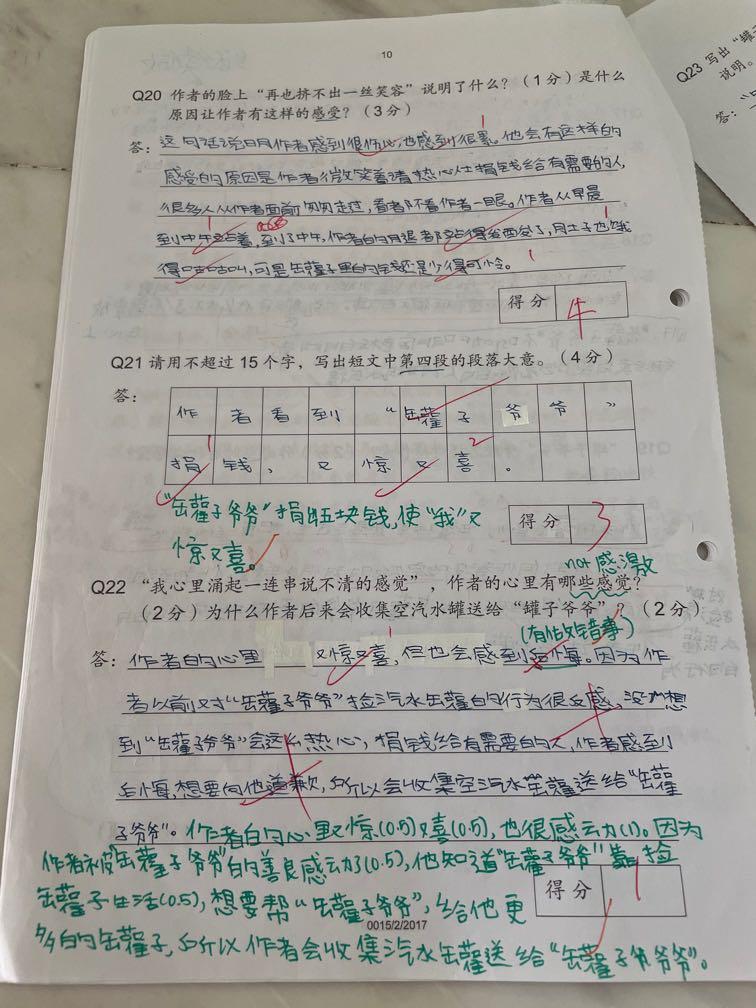 10
Q20 作者的脸上“再也挤不出一丝笑容”说明了什么？（1分）是什么
原因让作者有这样的感受？（3分）
答：这句话说明作者感到很伤心，也感到很累。他会有这样的
感受的原因是作者微笑着请热心人士捐钱给有需要的人，
很多人从作者面前匆匆走过，看都不看作者一眼。作者从早晨
到中午站着，到了中午，作者的月退都站得发酉发了，月土子也饿
得咕咕叫，可是缶藿子里的钱还是少得可怜。
1
1
1
1
得分
4
Q21 请用不超过15个字，写出短文中第四段的段落大意。（4分）
答：
作者看到“缶藿子爷爷”
捐钱，又惊又喜。
1
2
“缶藿子爷爷”捐出五块钱，使“我”又
惊又喜。
得分
3
not 感激
Q22 “我心里涌起一连串说不清的感觉”，作者的心里有哪些感觉？
（2分）为什么作者后来会收集空汽水罐送给“罐子爷爷”？（2分）
(有做错事)
答：作者的心里 又惊又喜，但也会感到后悔。因为作
1
者以前对“缶藿子爷爷”捡汽水缶藿的行为很反感，没想
到“缶藿子爷爷”会这么热心，捐钱给有需要的人，作者感到
后悔，想要向他道歉，所以会收集空汽水缶藿送给“缶藿
子爷爷”。作者的心里又惊(0.5)又喜(0.5)，也很感动(1)。因为
作者被“缶藿子爷爷”的善良感动了(0.5)，他知道“缶藿子爷爷”靠捡
缶藿子生活(0.5)，想要帮“缶藿子爷爷”，给他更
多的缶藿子，所以作者会收集汽水缶藿送给“缶藿子爷爷”。
得分
1
0015/2/2017
Q23 写出“罐
说明。
答：